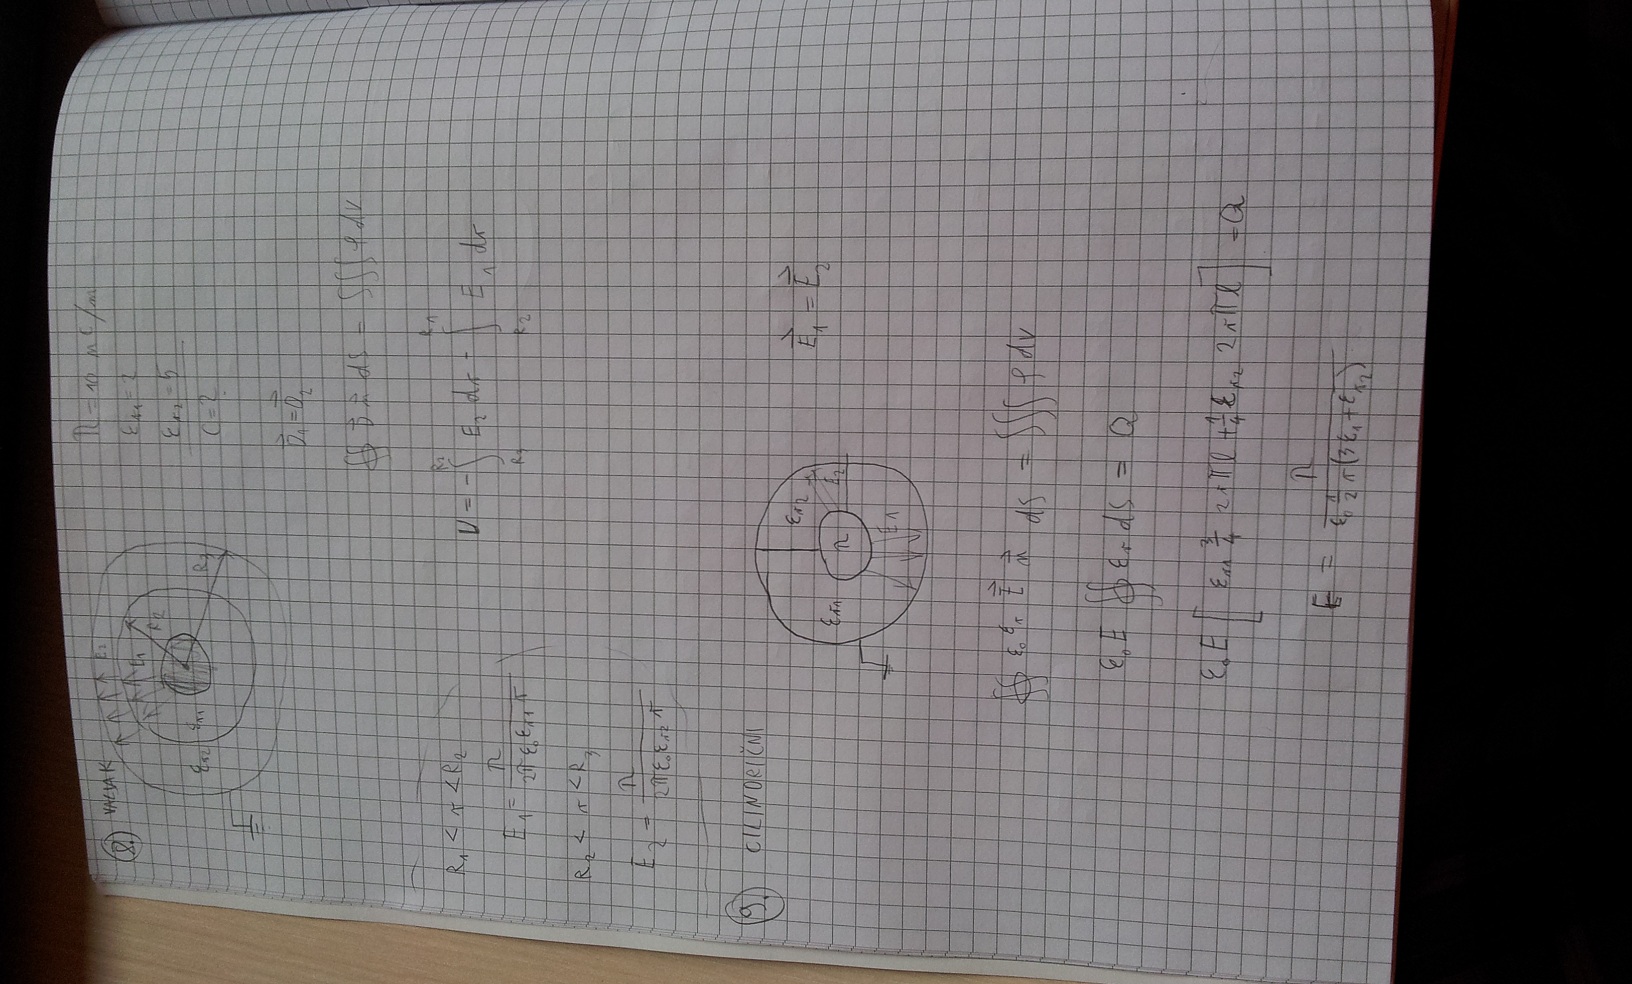 8. VALJAK
E₂
E₁
R₂
εr2 εr1
R₃
λ = 10 nC/m
εr1 = 2
εr2 = 5
C = ?
D⃗₁ = D⃗₂
∯ D⃗ n⃗ dS = ∭ ρ dV
R₁ < r < R₂
E₁ = λ / (2π ε₀ εr1 r)
U = - ∫_{R₃}^{R₂} E₂ dr - ∫_{R₂}^{R₁} E₁ dr
R₂ < r < R₃
E₂ = λ / (2π ε₀ εr2 r)
9. CILINDRIČNI
εr2
εr1 λ E₂
E₁
E⃗₁ = E⃗₂
∯ ε₀ εr E⃗ n⃗ dS = ∭ ρ dV
ε₀ E ∯ εr dS = Q
ε₀ E [ εr1 3/4 2rπl + 1/4 εr2 2rπl ] = Q
E = λ / (ε₀ 1/2 π (3ε₁ + εr2))